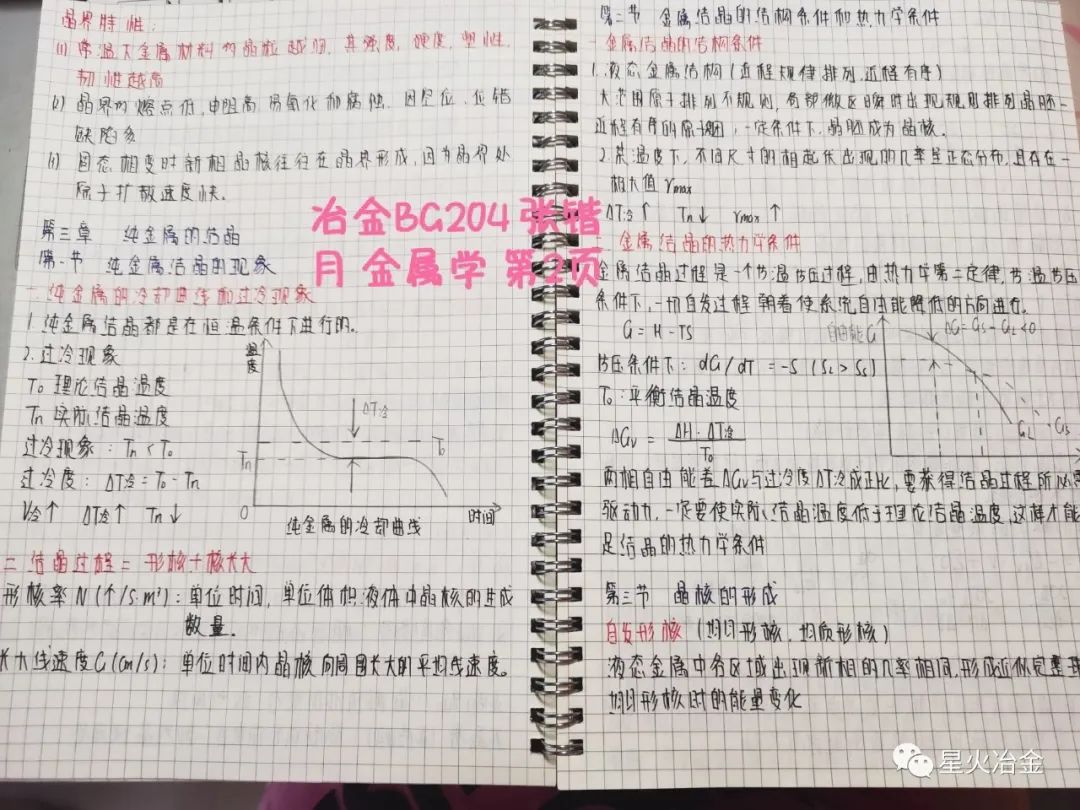 晶界特性:
(1) 常温下金属材料的晶粒越细，其强度，硬度，塑性，
韧性越高
(2) 晶界的熔点低，电阻高 易氧化和腐蚀. 因空位、位错
缺陷多
(3) 固态相变时新相晶核往往在晶界形成，因为晶界处
原子扩散速度快.
第三章 纯金属的结晶
第一节 纯金属结晶的现象
一 纯金属的冷却曲线和过冷现象
1. 纯金属结晶都是在恒温条件下进行的.
2. 过冷现象
T0 理论结晶温度
Tn 实际结晶温度
过冷现象: Tn < T0
过冷度: ΔT冷 = T0 - Tn
V冷↑ ΔT冷↑ Tn↓
温度
ΔT冷
Tn
T0
0
时间
纯金属的冷却曲线
二 结晶过程 = 形核 + 核长大
形核率 N (个/s·m³): 单位时间，单位体积液体中晶核的生成
数量.
长大线速度 G (cm/s): 单位时间内晶核向周围长大的平均线速度。
第二节 金属结晶的结构条件和热力学条件
一 金属结晶的结构条件
1. 液态金属结构 (近程规律排列, 近程有序)
大范围原子排列不规则，局部微区瞬时出现规则排列晶胚=
近程有序的原子团，一定条件下，晶胚成为晶核.
2. 某温度下，不同尺寸的相起伏出现的几率呈正态分布，且存在一
极大值 rmax
ΔT冷↑ Tn↓ rmax↑
二 金属结晶的热力学条件
金属结晶过程是一个等温等压过程，由热力学第二定律，等温等压
条件下，一切自发过程朝着使系统自由能降低的方向进行.
G = H - TS
等压条件下: dG/dT = -S (SL > SS)
T0: 平衡结晶温度
ΔGv = ΔH·ΔT冷 / T0
自由能G
ΔG = GS - GL < 0
GL
GS
两相自由能差ΔGv与过冷度ΔT冷成正比，要获得结晶过程所必需
驱动力，一定要使实际结晶温度低于理论结晶温度，这样才能
是结晶的热力学条件
第三节 晶核的形成
自发形核 (均匀形核，均质形核)
液态金属中各区域出现新相的几率相同，形成
均匀形核时的能量变化
冶金BG204 张锴
月 金属学 第2页
星火冶金